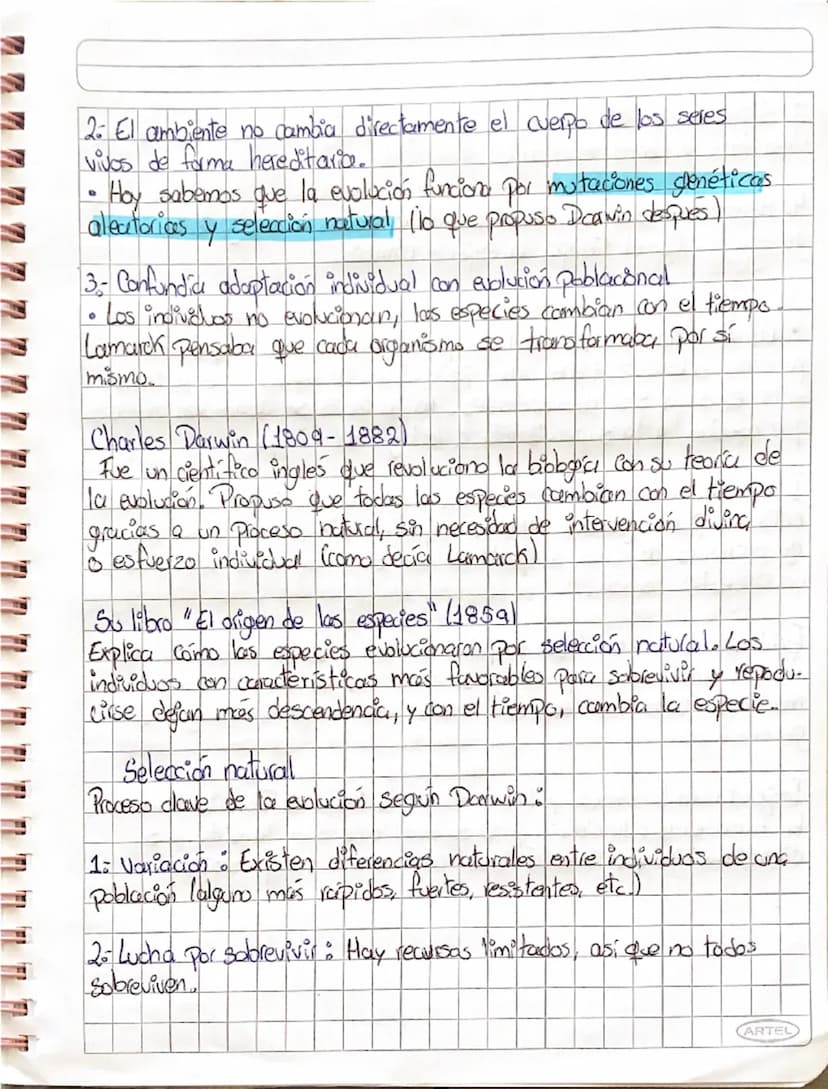 2.- El ambiente no cambia directamente el cuerpo de los seres
vivos de forma hereditaria.
• Hoy sabemos que la evolución funciona por mutaciones genéticas
aleatorias y selección natural (lo que propuso Darwin después)
3.- Confundía adaptación individual con evolución poblacional
• Los individuos no evolucionan, las especies cambian con el tiempo.
Lamarck pensaba que cada organismo se transformaba por sí
mismo.
Charles Darwin (1809-1882)
Fue un científico inglés que revoluciono la biología con su teoría de
la evolución. Propuso que todas las especies cambian con el tiempo
gracias a un proceso natural, sin necesidad de intervención divina
o esfuerzo individual (como decía Lamarck)
Su libro "El origen de las especies" (1859)
Explica cómo las especies evolucionaron por selección natural. Los
individuos con características más favorables para sobrevivir y repodu-
cirse dejan más descendencia, y con el tiempo, cambia la especie.
Selección natural
Proceso clave de la evolución según Darwin:
1.- Variación: Existen diferencias naturales entre individuos de una
población (alguno más rápidos, fuertes, resistentes, etc.)
2.- Lucha por sobrevivir: Hay recursos limitados, así que no todos
sobreviven.
ARTEL